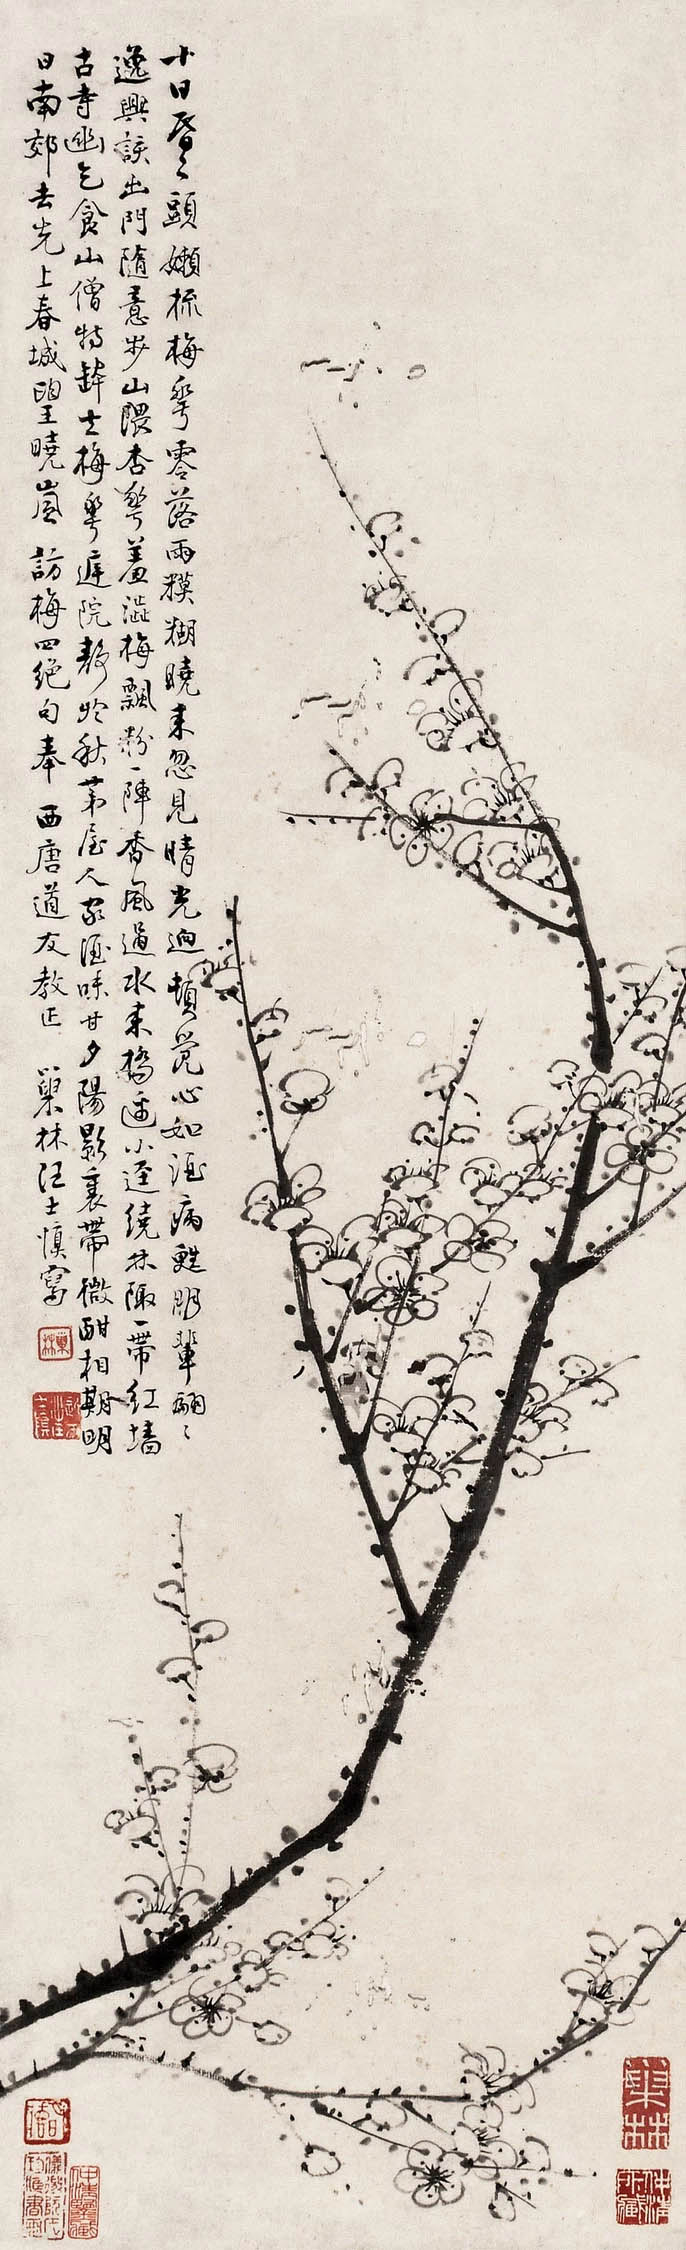 十日昏〻頭嬾梳梅華零落雨糢糊曉來忽見晴光迴頓覺心如酒病甦 朋輩翩〻
逸興該出門隨意步山隈杏華羞澀梅飄粉一陣香風過水來 橋邊小逕繞林陬一帶紅墻
古寺幽乞食山僧特缽去梅華遲院靜於秋 茅屋人家酒味甘夕陽影裏帶微酣相期明
日南郊去先上春城望曉嵐 訪梅四絕句奉 西唐道友教正 巢林汪士慎寫
巢林
巢林